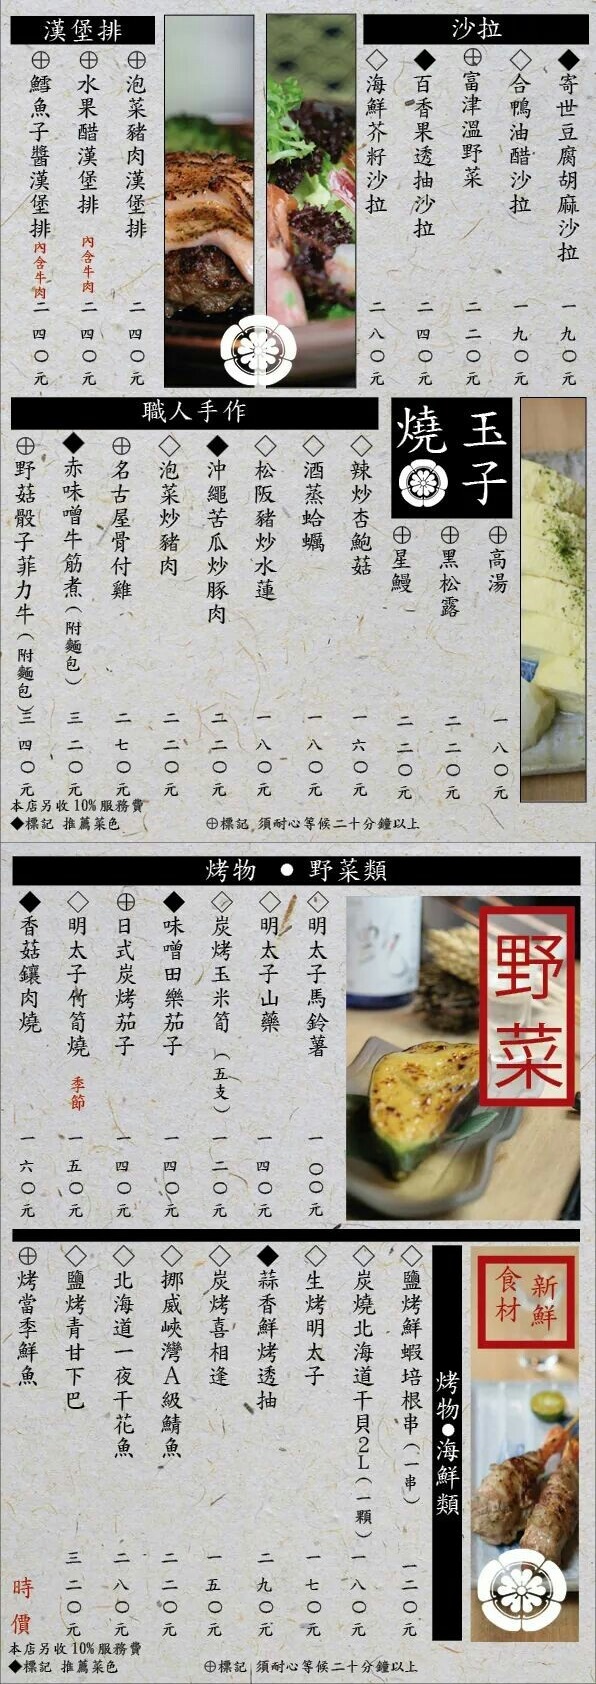 沙拉
◆寄世豆腐胡麻沙拉 一九〇元
◇合鴨油醋沙拉 一九〇元
⊕富津溫野菜 二四〇元
◆百香果透抽沙拉 二四〇元
◇海鮮芥籽沙拉 二八〇元
漢堡排
⊕泡菜豬肉漢堡排 二四〇元
⊕水果醋漢堡排 內含牛肉 二四〇元
⊕鱈魚子醬漢堡排 內含牛肉 二四〇元
玉子燒
⊕高湯 一八〇元
⊕黑松露 二二〇元
⊕星鰻 二二〇元
職人手作
◇辣炒杏鮑菇 一六〇元
◇酒蒸蛤蠣 一八〇元
◇松阪豬炒水蓮 一八〇元
◆沖繩苦瓜炒豚肉 二二〇元
◇泡菜炒豬肉 二二〇元
⊕名古屋骨付雞 二七〇元
◆赤味噌牛筋煮(附麵包) 三二〇元
⊕野菇骰子菲力牛(附麵包) 三四〇元
本店另收10%服務費
◆標記 推薦菜色 ⊕標記 須耐心等候二十分鐘以上
烤物●野菜類
野菜
◇明太子馬鈴薯 一〇〇元
◇明太子山藥 一四〇元
◇炭烤玉米筍(五支) 一二〇元
◆味噌田樂茄子 一四〇元
⊕日式炭烤茄子 一四〇元
◇明太子竹筍燒 季節 一五〇元
◆香菇鑲肉燒 一六〇元
新鮮食材
烤物●海鮮類
◇鹽烤鮮蝦培根串(一串) 一二〇元
◇炭燒北海道干貝2L(一顆) 一八〇元
◇生烤明太子 一七〇元
◆蒜香鮮烤透抽 二九〇元
◇炭烤喜相逢 一五〇元
◇挪威峽灣A級鯖魚 二二〇元
◇北海道一夜干花魚 二八〇元
◇鹽烤青甘下巴 三二〇元
⊕烤當季鮮魚 時價
本店另收10%服務費
◆標記 推薦菜色 ⊕標記 須耐心等候二十分鐘以上